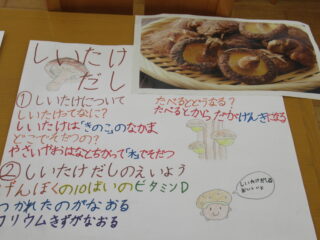 しいたけ
だし
①しいたけについて
しいたけってなに？
しいたけは「きのこ」のなかま
どこでそだつの？
やさいやおはなとちがって「木」でそだつ
たべるとどうなる？
たべるとからだがげんきになる
② しいたけだしのえいよう
げんぼくの10ばいのビタミンD
つかれたのがなおる
カリウムきずがなおる
しいたけだし
おいしいよ